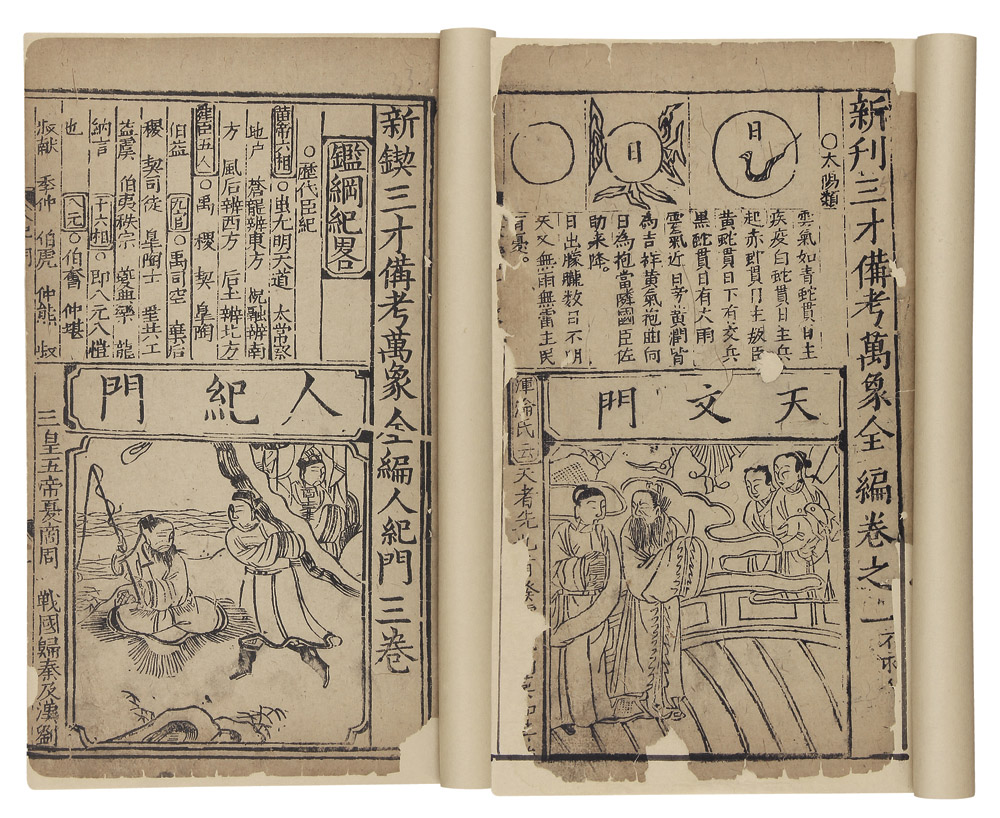 新刊三才備考萬象全編卷之一
○太陽類
日
日
雲氣如青蛇貫日主
疾疫白蛇貫日主兵
起赤蛇貫日主叛臣
黃蛇貫日下有交兵
黑蛇貫日有大雨
雲氣近日旁黃潤皆
為吉祥黃氣抱曲向
日為抱當隣國臣佐
助來降。
日出朦朧数日不明
天又無雨無雷主民
有憂。
天文門
渾淪氏云天者先
新鍥三才備考萬象全編人紀門三卷
鑑綱紀畧
○歷代臣紀
黃帝六相○蚩尤明天道 太常察
地户 蒼龍辨東方 祝融辨南
方 風后辨西方 后土辨北方
舜臣五人○禹 稷 契 皐陶
伯益 四官○禹司空 棄后
稷 契司徒 皐陶士 垂共工
益虞 伯夷秩宗 夔典樂 龍
納言 十六相○即八元八愷
也 八元○伯奮 仲堪
叔献 季仲 伯虎 仲熊 叔
人紀門
三皇五帝夏商周 戰國歸秦及漢劉